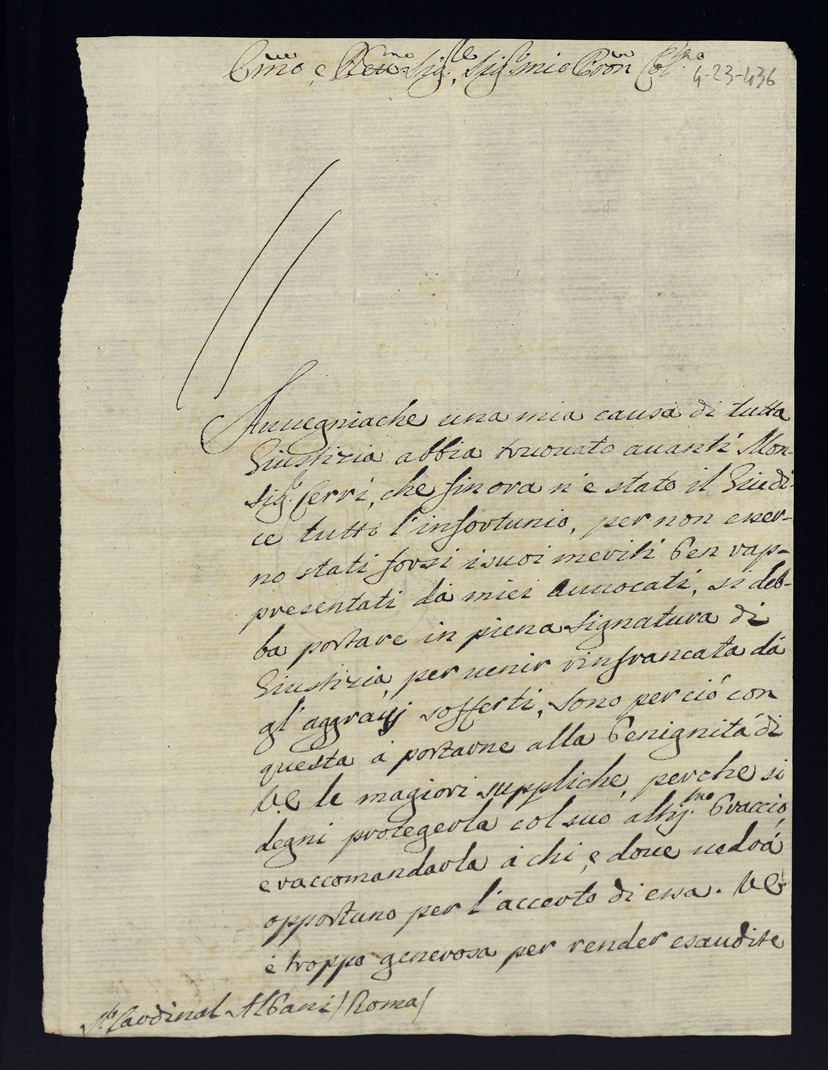 Emo, e Rmo Sig.re, Sig.r mio Pron Col.mo
4-23-436
Auuegniache una mia causa di tutta
Giustizia abbia truouato auanti Mon-
sig.r Cerri, che fin ora n'è stato il Giudi-
ce tutto l'infortunio, per non esser-
no stati forsi i suoi meriti ben rap-
presentati da miei Auuocati, si deb-
ba portare in piena Signatura di
Giustizia, per uenir rinfrancata da
gl'aggrauj sofferti, sono perciò con
questa à portarne alla benignità di
V.E. le magiori suppliche, perche si
degni protegerla col suo altiss.mo braccio,
e raccomandarla à chi, e doue uedrà
opportuno per l'accerto di essa. V.E.
è troppo generosa per render esaudite
S.r Cardinal Albani / Roma /